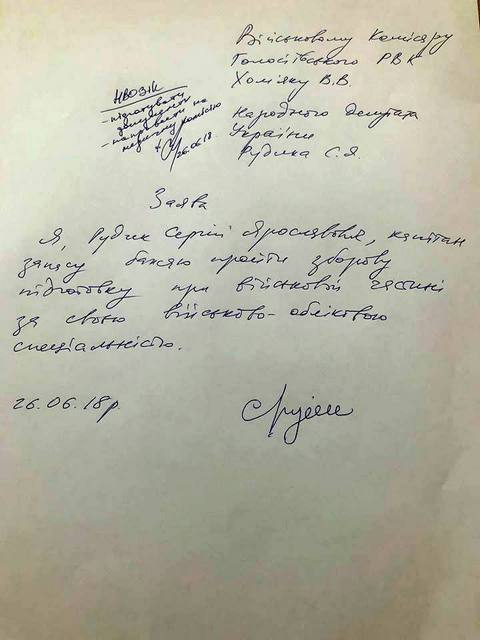 Військовому Комісару
Голосіївського РВК
Хом'яку В.В.
Народного депутата
України
Рудика С.Я.
НВОЗІК
- підготувати
документи
- направити на
медичну комісію
26.06.18.
Заява
Я, Рудик Сергій Ярославович, капітан
запасу бажаю пройти зборову
підготовку при військовій частині
за своєю військово-обліковою
спеціальністю.
26.06.18р.